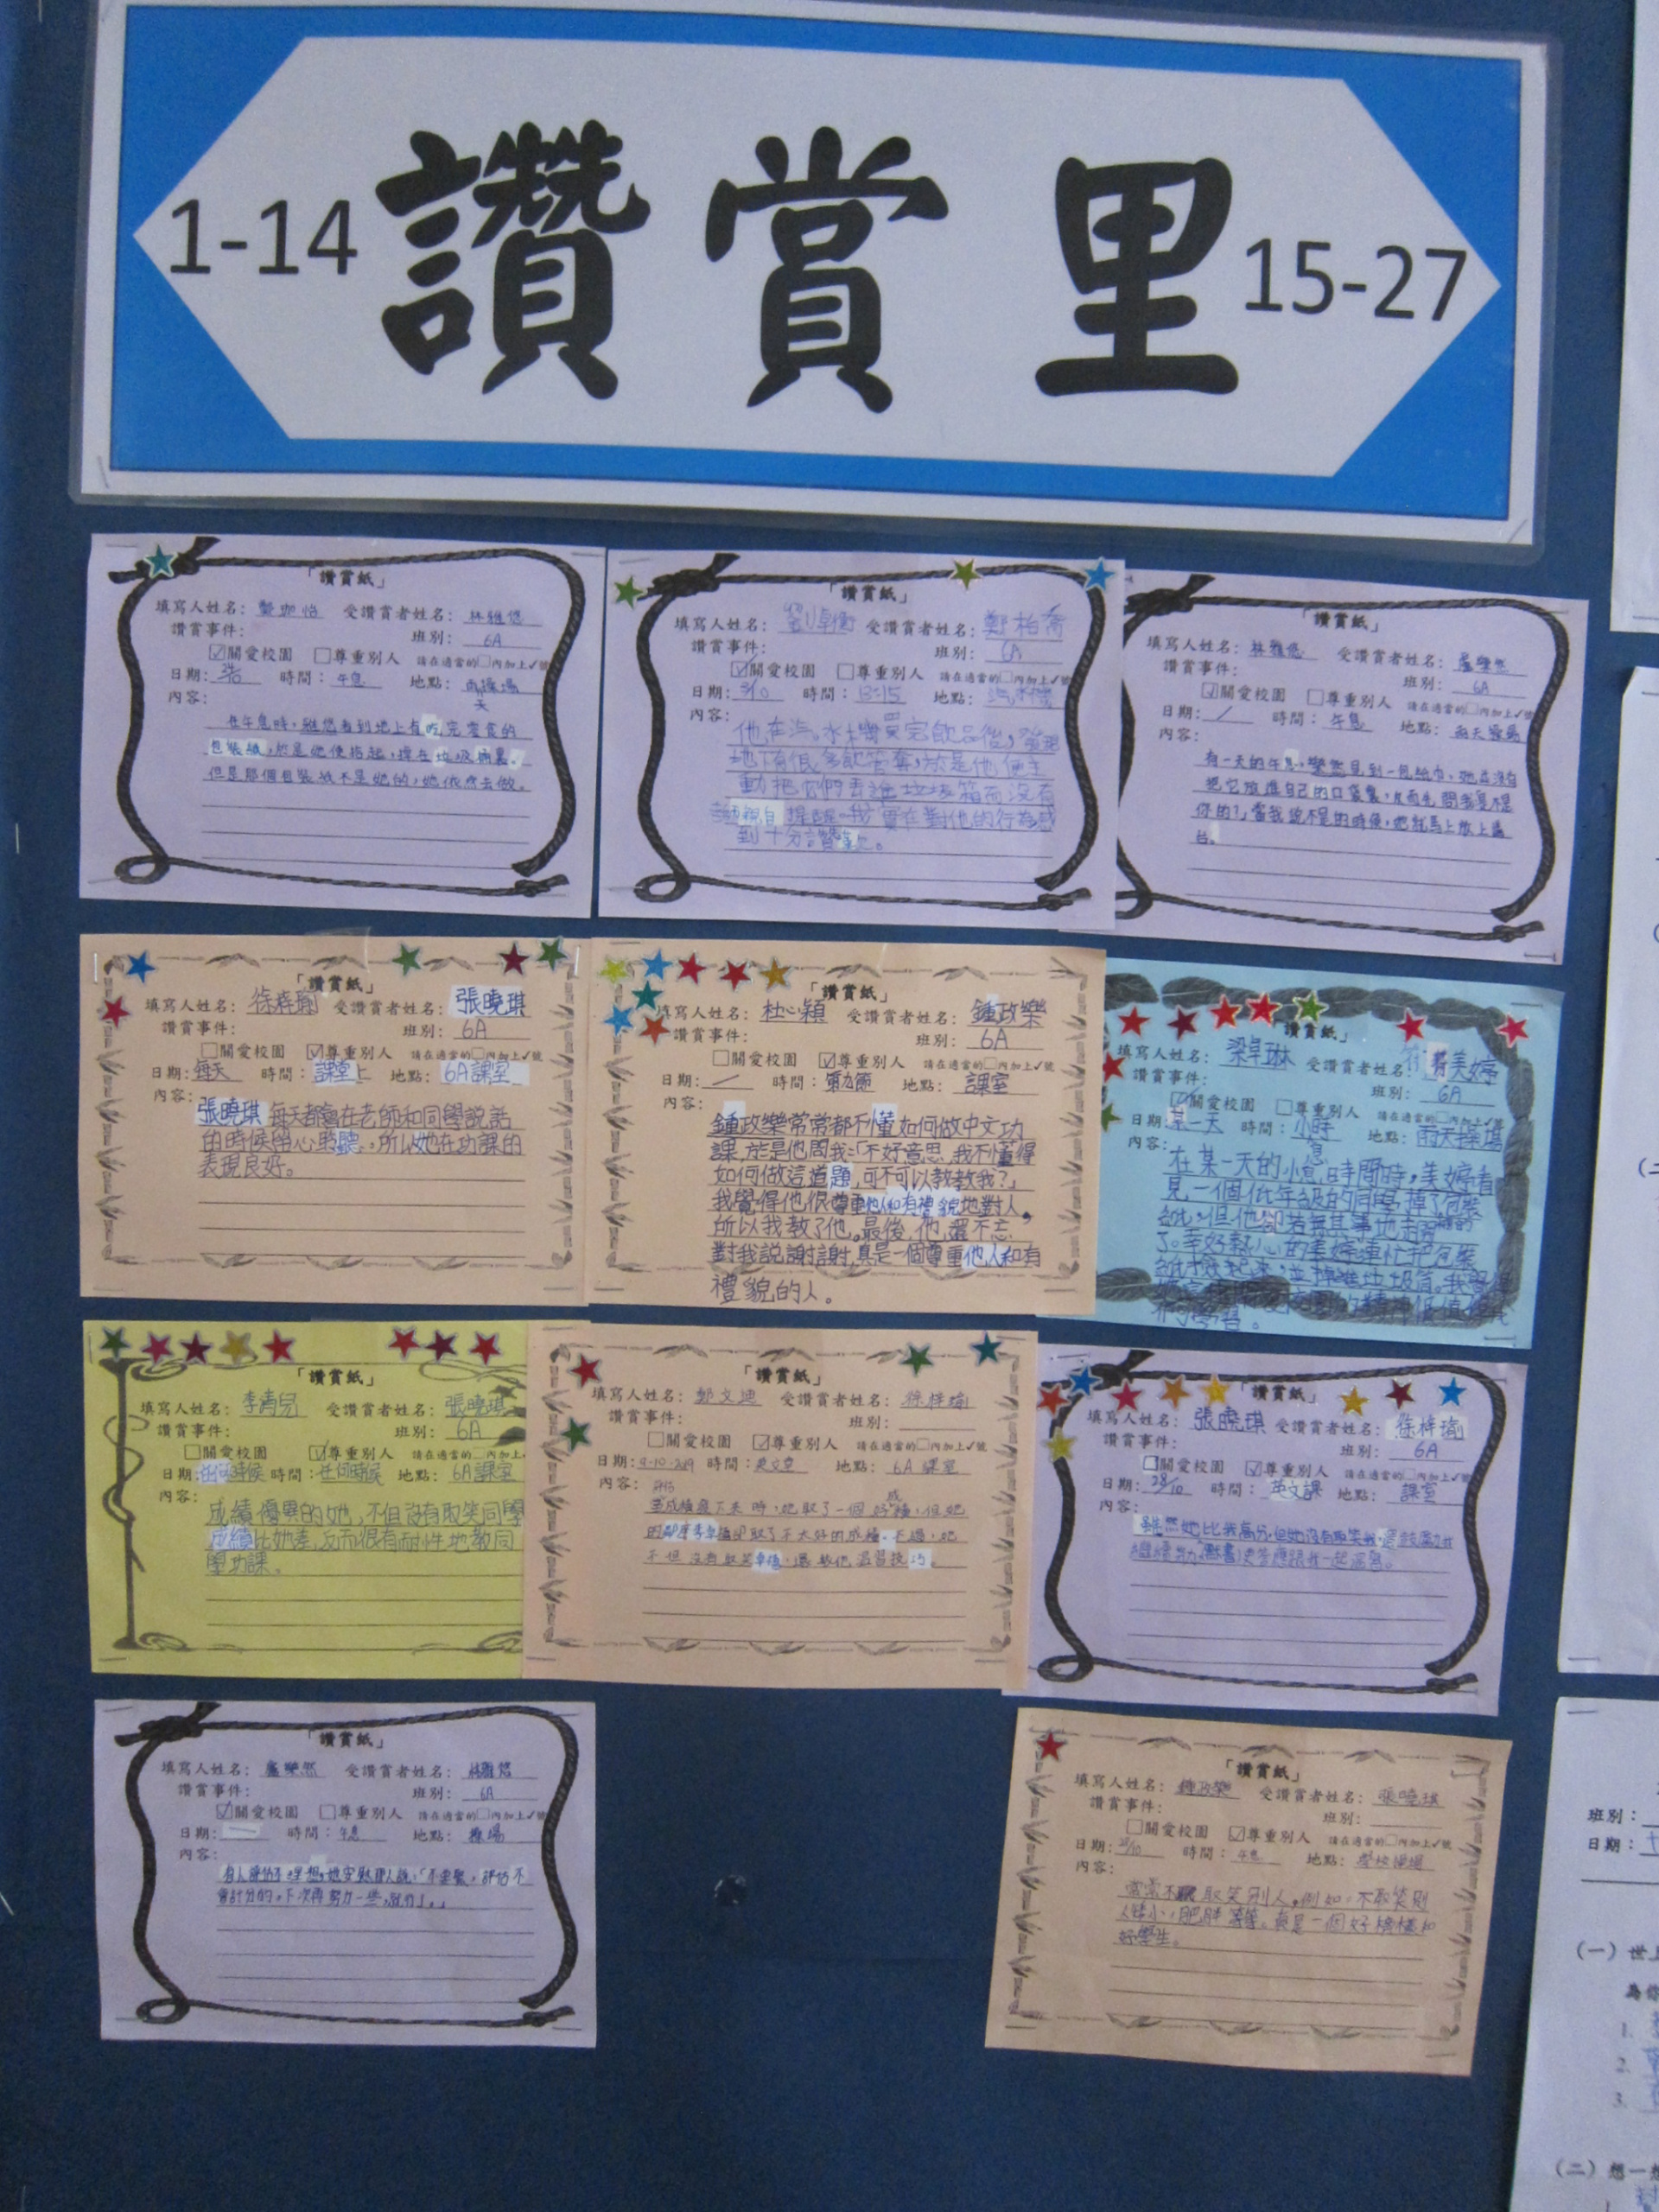 1-14 讚賞里 15-27
「讚賞紙」
填寫人姓名： 受讚賞者姓名：林雅悠
讚賞事件： 班別：6A
☑關愛校園 □尊重別人 請在適當的□內加上✓號
日期： 時間：午息 地點：雨天操場
內容：
在午息時，雅悠看到地上有吃完零食的
包裝紙，於是他便拾起，揼在垃圾桶裏。
但是那個包裝紙不是她的，她依然去做。
「讚賞紙」
填寫人姓名：劉卓衡 受讚賞者姓名：鄭柏喬
讚賞事件： 班別：6A
☑關愛校園 □尊重別人 請在適當的□內加上✓號
日期： 時間：13:15 地點：汽水機
內容：
他在汽水機買完飲品後，發現
地下有很多飲管套，於是他便主
動把它們丟進垃圾箱而沒有
老師親自提醒。我實在對他的行為感
到十分讚歎。
「讚賞紙」
填寫人姓名：林雅悠 受讚賞者姓名：盧樂然
讚賞事件： 班別：6A
☑關愛校園 □尊重別人 請在適當的□內加上✓號
日期：／ 時間：午息 地點：雨天操場
內容：
有一天的午息，樂然見到一包紙巾，她並沒有
把它放進自己的口袋裏，反而先問我是不是
你的？」當我說不是的時候，她就馬上放上講
台。
「讚賞紙」
填寫人姓名：徐梓瑜 受讚賞者姓名：張曉琪
讚賞事件： 班別：6A
□關愛校園 ☑尊重別人 請在適當的□內加上✓號
日期：每天 時間：課堂上 地點：6A課室
內容：
張曉琪每天都會在老師和同學說話
的時候用心聆聽，所以她在功課的
表現良好。
「讚賞紙」
填寫人姓名：杜心穎 受讚賞者姓名：鍾政樂
讚賞事件： 班別：6A
□關愛校園 ☑尊重別人 請在適當的□內加上✓號
日期：／ 時間：第九節 地點：課室
內容：
鍾政樂常常都不懂如何做中文功
課，於是他問我：「不好意思，我不懂得
如何做這道題，可不可以教教我？」
我覺得他很尊重他人和有禮貌地對人，
所以我教了他。最後，他還不忘
對我說謝謝，真是一個尊重他人和有
禮貌的人。
「讚賞紙」
填寫人姓名：梁卓琳 受讚賞者姓名：美婷
讚賞事件： 班別：6A
☑關愛校園 □尊重別人 請在適當的□內加上✓號
日期：某一天 時間：小息 地點：雨天操場
內容：
在某一天的小息時間時，美婷看
見一個低年級的同學掉了包裝
紙，但他卻若無其事地走開
了。幸好熱心的美婷連忙把包裝
紙拾起來，並掉進垃圾筒。我覺得
「讚賞紙」
填寫人姓名：李清兒 受讚賞者姓名：張曉琪
讚賞事件： 班別：6A
□關愛校園 ☑尊重別人 請在適當的□內加上
日期：任何時候 時間：任何時候 地點：6A課室
內容：
成績優異的她，不但沒有取笑同學
成績比她差，反而很有耐性地教同
學功課。
「讚賞紙」
填寫人姓名：鄭文迪 受讚賞者姓名：徐梓瑜
讚賞事件： 班別：
□關愛校園 ☑尊重別人 請在適當的□內加上✓號
日期： 時間：英文堂 地點：6A課室
內容：
成績發下來時，她取了一個好成績，但她
取了不太好的成績。不過，她
不但沒有取笑，還教他溫習技巧。
「讚賞紙」
填寫人姓名：張曉琪 受讚賞者姓名：徐梓瑜
讚賞事件： 班別：6A
□關愛校園 ☑尊重別人 請在適當的□內加上✓號
日期：28/10 時間：英文課 地點：課室
內容：
雖然她比我高分，但她沒有取笑我，還鼓勵我
繼續努力，更答應跟我一起溫習。
「讚賞紙」
填寫人姓名：盧樂然 受讚賞者姓名：林雅悠
讚賞事件： 班別：6A
☑關愛校園 □尊重別人 請在適當的□內加上✓號
日期： 時間：午息 地點：操場
內容：
有人評估不理想，她安慰別人說：「不要緊，評估不
會計分的，下次再努力一些，就行」。
「讚賞紙」
填寫人姓名：鍾政樂 受讚賞者姓名：張曉琪
讚賞事件： 班別：
□關愛校園 ☑尊重別人 請在適當的□內加上✓號
日期： 時間：午息 地點：學校操場
內容：
常常不取笑別人，例如：不取笑別
人矮小，肥胖等等。真是一個好榜樣和
好學生。
班別：
日期：
(一) 世上
為你
1.
2.
3.
(二) 想一想